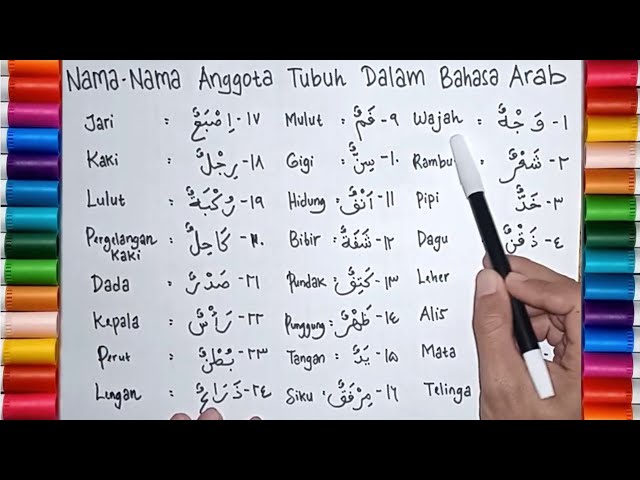 Nama-Nama Anggota Tubuh Dalam Bahasa Arab
Jari : ١٧- اِصْبَعٌ Mulut : ٩- فَمٌ Wajah : ١- وَجْهٌ
Kaki : ١٨- رِجْلٌ Gigi : ١٠- سِنٌّ : ٢- شَعْرٌ
Lulut : ١٩- رُكْبَةٌ Hidung : ١١- اَنْفٌ Pipi ٣- خَدٌّ
Pergelangan Kaki : ٢٠- كَاحِلٌ Bibir : ١٢- شَفَةٌ Dagu ٤- ذَقْنٌ
Dada : ٢١- صَدْرٌ Pundak : ١٣- كَتِفٌ Leher
Kepala : ٢٢- رَأْسٌ Punggung : ١٤- ظَهْرٌ Alis
Perut : ٢٣- بُطْنٌ Tangan : ١٥- يَدٌ Mata
Lengan : ٢٤- ذَرَاعٌ Siku : ١٦- مِرْفَقٌ Telinga